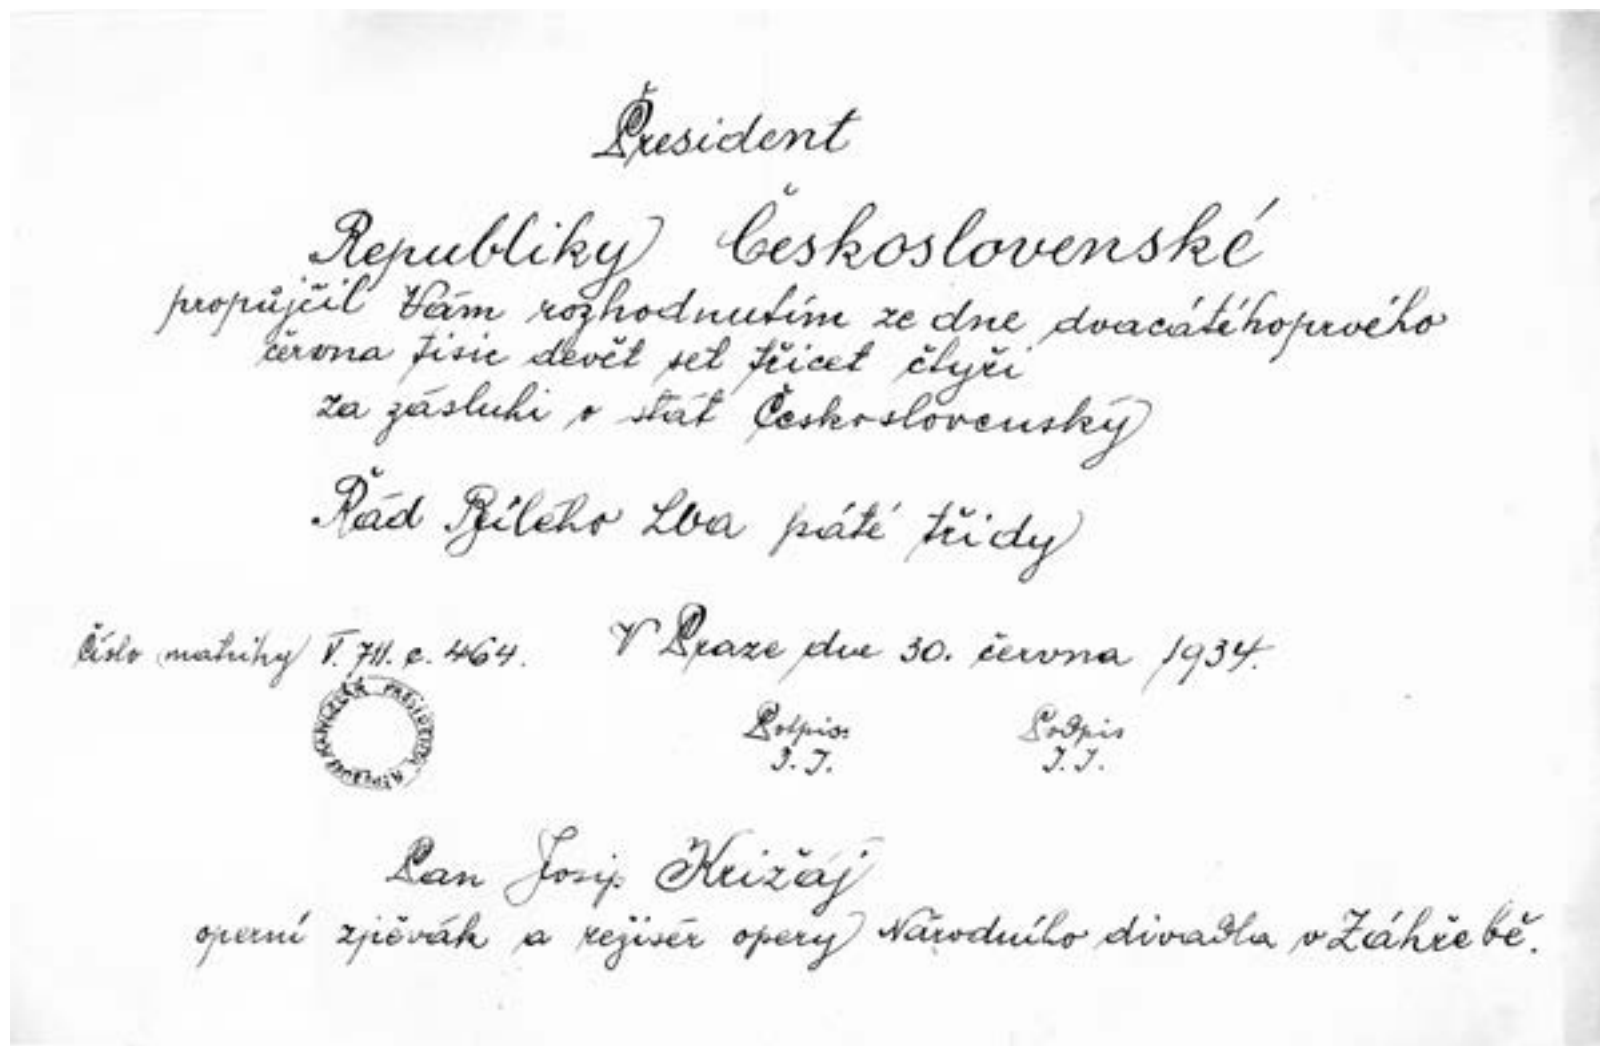 President
Republiky Československé
propůjčil Vám rozhodnutím ze dne dvacátéhoprvého
června tisic devět set třicet čtyři
za zásluhi o stát Československý
Řád Bílého Lva páté třidy
Číslo matriky V. 7II. c. 464. V Praze dne 30. června 1934.
KANCELÁŘ PRESIDENTA REPUBLIKY
Potpis: Podpis
I. I. I. I.
Pan Josip Križáj
operní zpěvák a režisér opery Národního divadla v Záhřebě.